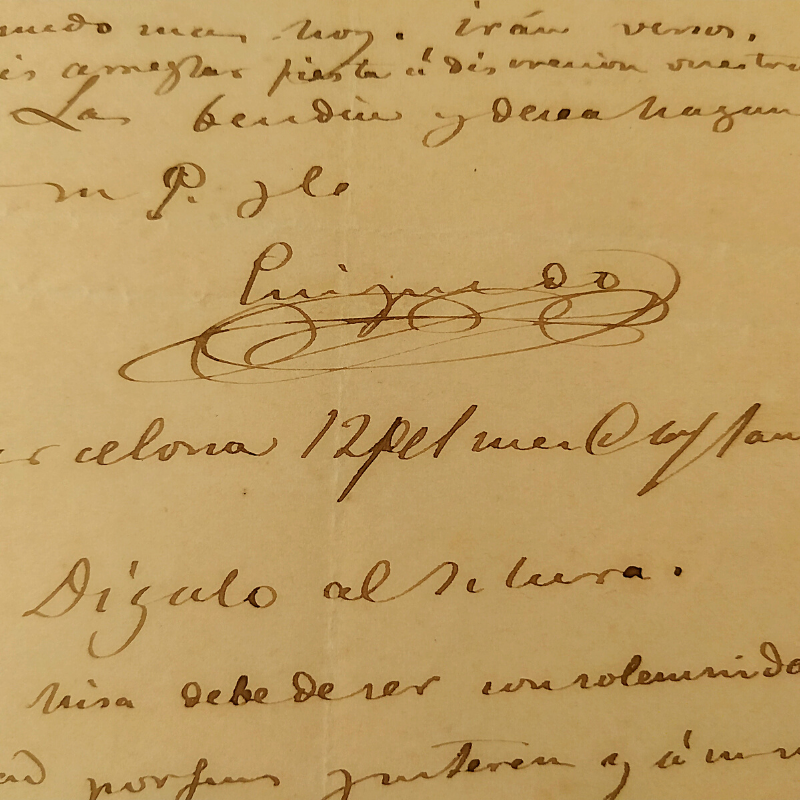 puedo mas hoy. irán versos.
is arreglar fiesta á discrecion vuestra
Las bendice y desea hagan
P. y le
Puignedo
rcelona 12 del mes
Dígalo al Sr Cura.
misa debe de ser con solemnida
por sus y á